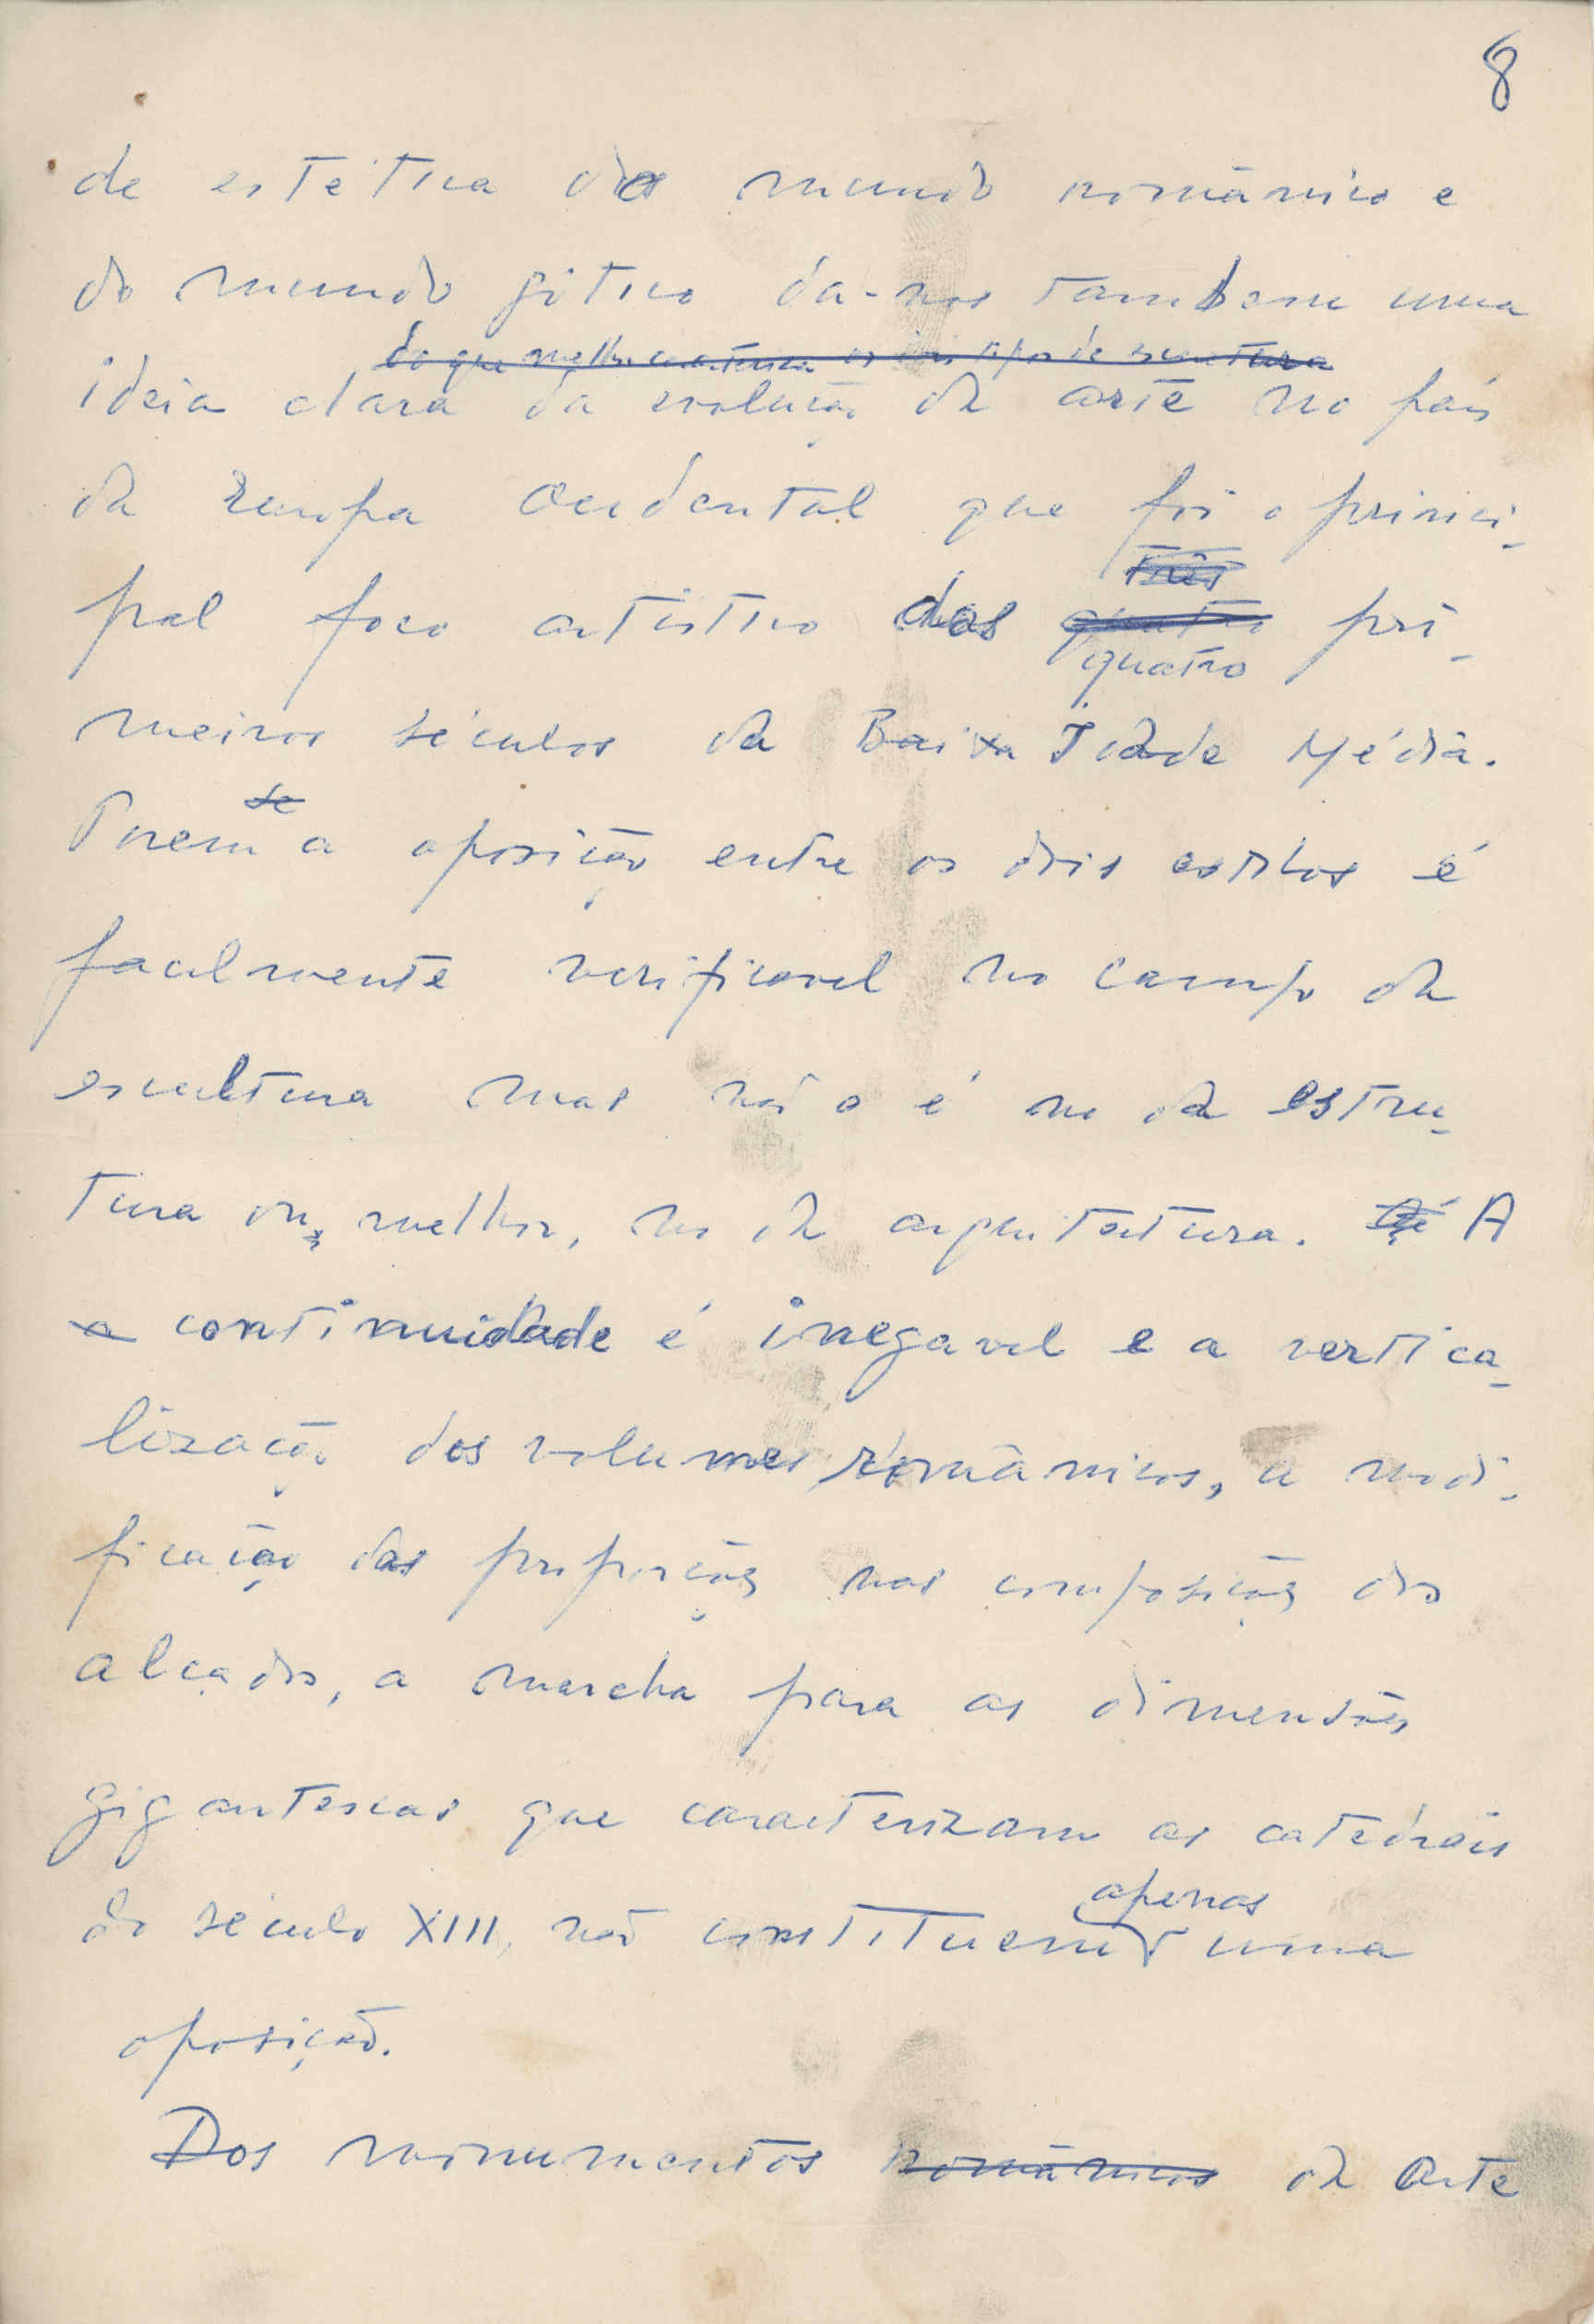 8
de estética do mundo românico e
do mundo gótico dá-nos tambem uma
do que melhor caracteriza os dois tipos de escultura
ideia clara da evolução da arte no país
da Europa Ocidental que foi o princi-
três
pal foco artístico dos quatro pri-
quatro
meiros séculos da Baixa Idade Média.
se
Porem a oposição entre os dois estilos é
facilmente verificavel no campo da
escultura mas não o é no da estru-
tura ou, melhor, no da arquitectura. A
a continuidade é inegavel e a vertica-
lização dos volumes românicos, a modi-
ficação das proporções nas composições dos
alçados, a marcha para as dimensões
gigantescas que caracterizam as catedrais
apenas
do século XIII, não constituem uma
oposição.
Dos monumentos românicos da Arte